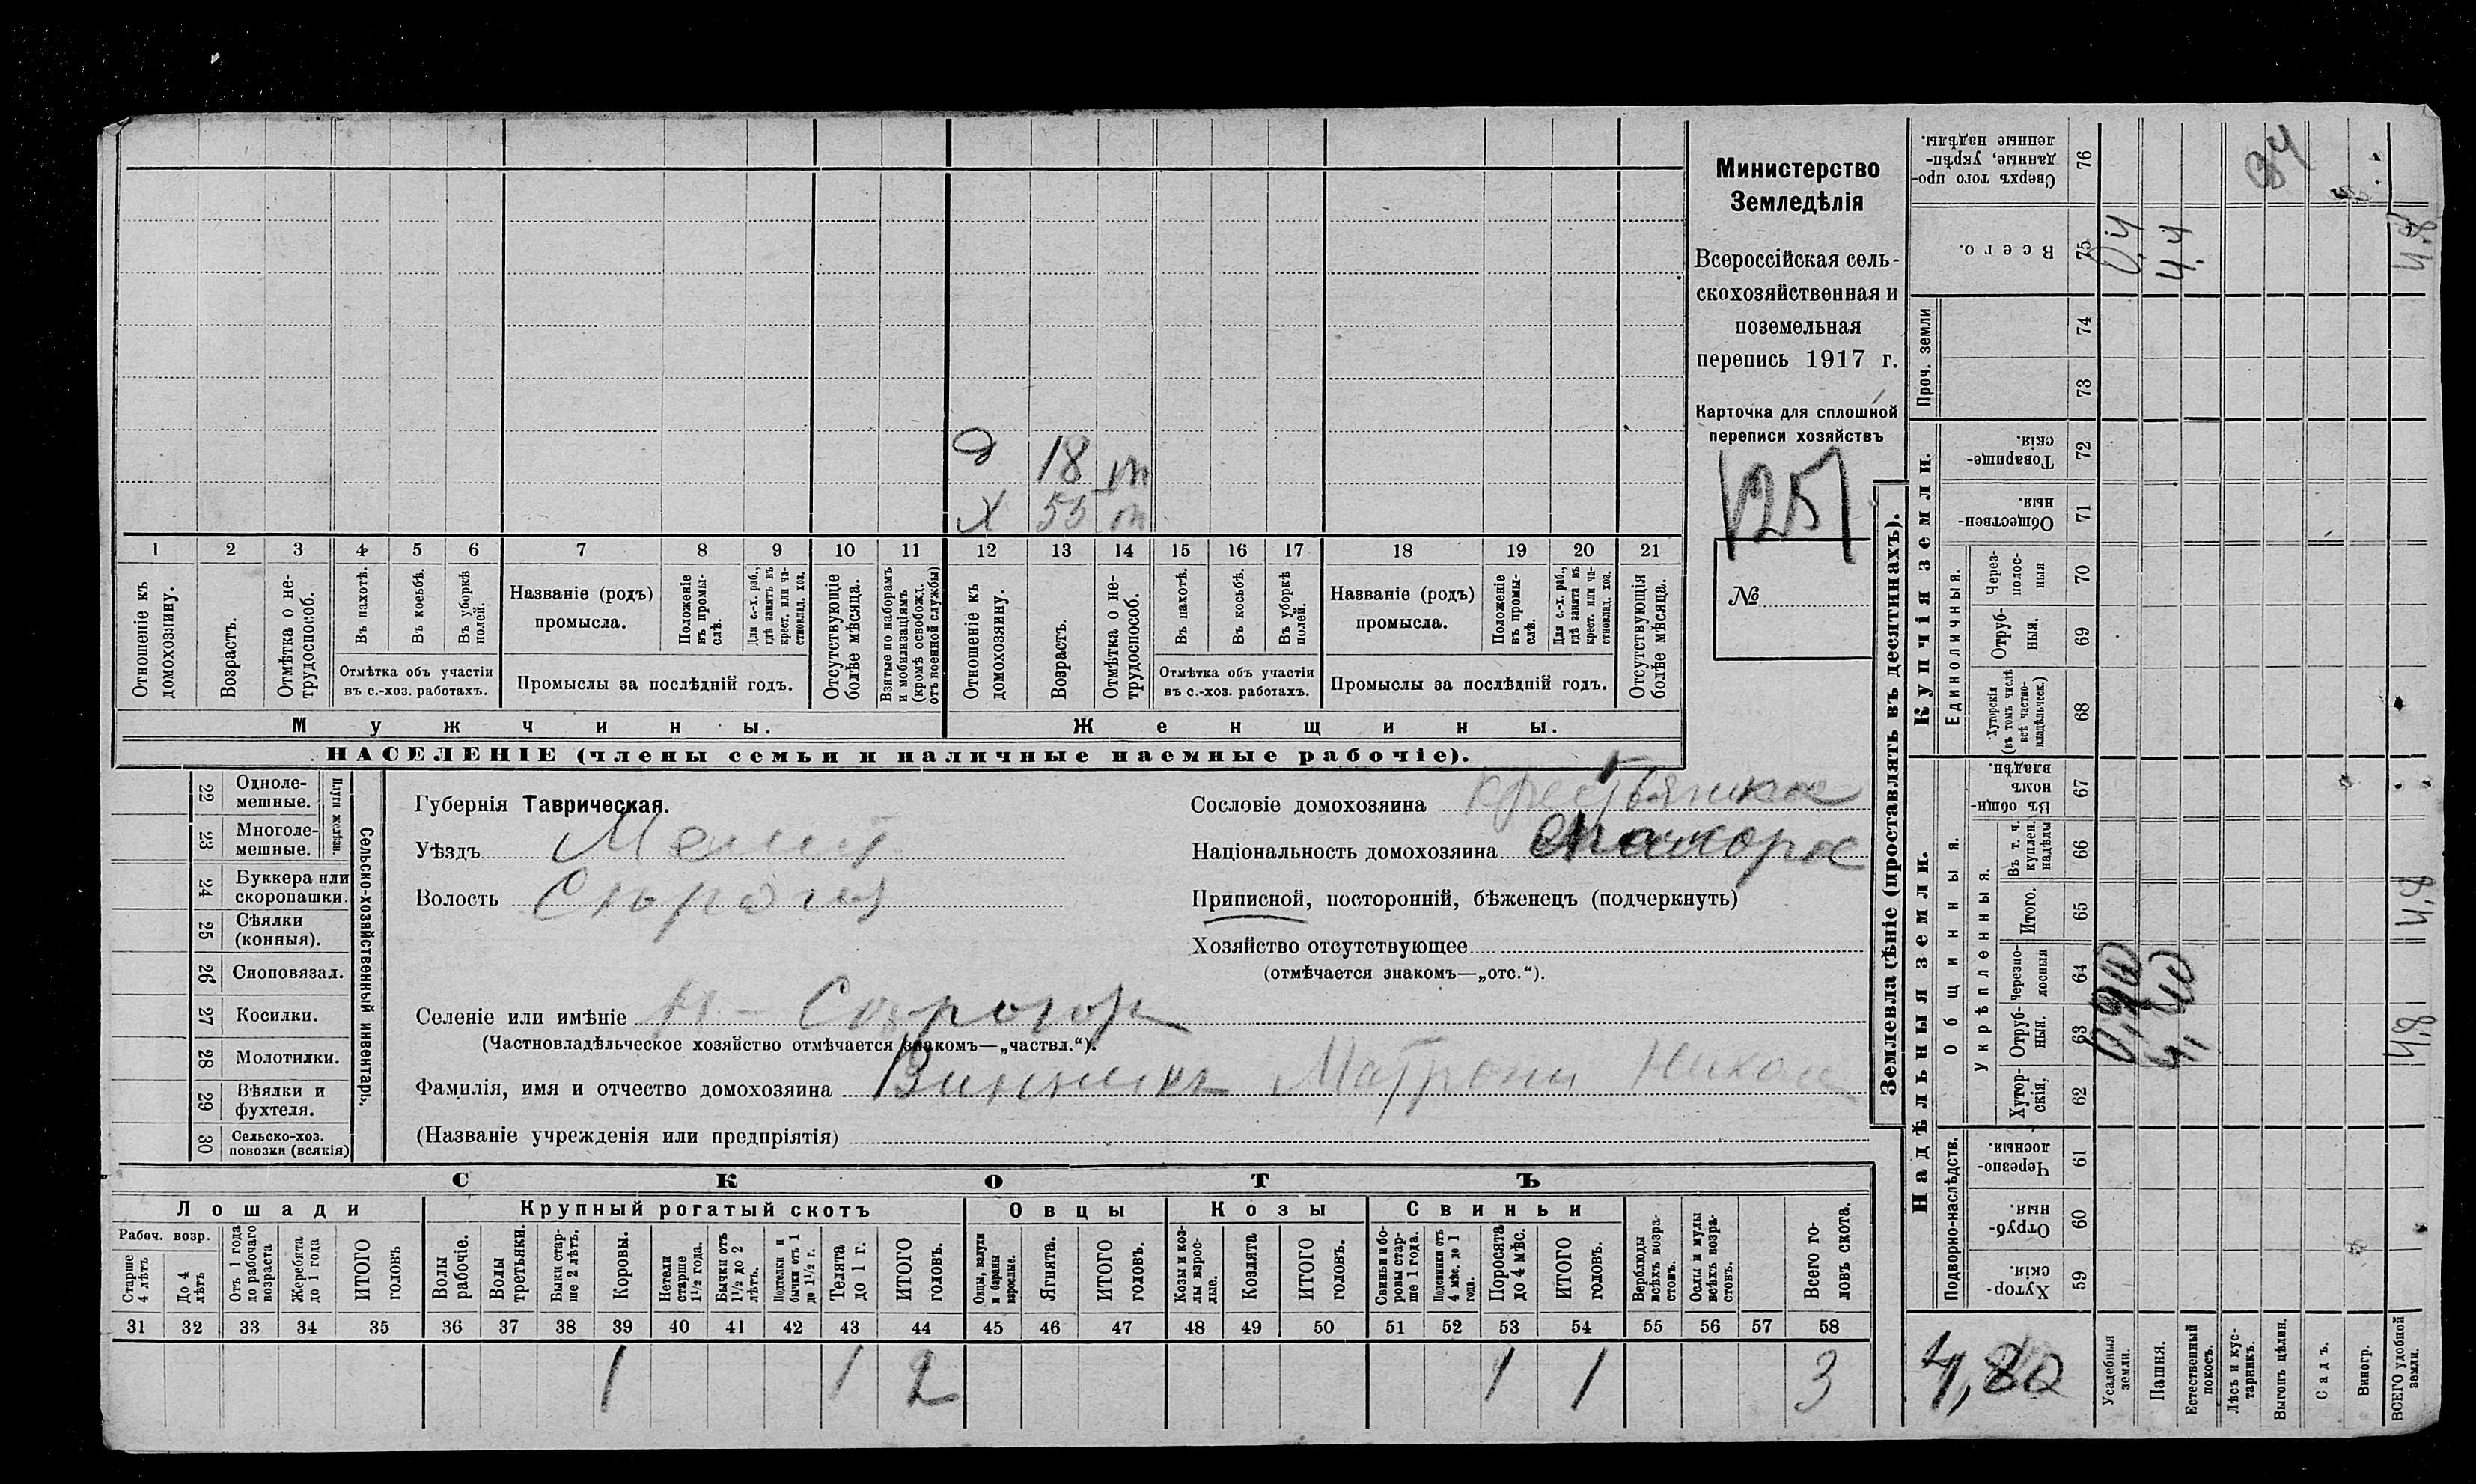 Министерство
Земледѣлія
Всероссійская сель-
скохозяйственная и
поземельная
перепись 1917 г.
Карточка для сплошной
переписи хозяйствъ
1251
№
х 55 т
д 18 т
1 2 3 4 5 6 7 8 9 10 11 12 13 14 15 16 17 18 19 20 21
Отношеніе къ домохозяину.
Возрастъ.
Отмѣтка о не-трудоспособ.
Въ пахотѣ.
Въ косьбѣ.
Въ уборкѣ полей.
Отмѣтка объ участіи въ с.-хоз. работахъ.
Названіе (родъ) промысла.
Положеніе въ промы-слѣ.
Для с.-х. раб., гдѣ занятъ въ крест. или ча-стновлад. хоз.
Промыслы за послѣдній годъ.
Отсутствующіе болѣе мѣсяца.
Взятые по наборамъ и мобилизаціямъ (кромѣ освобожд. отъ военной службы)
Отношеніе къ домохозяину.
Возрастъ.
Отмѣтка о не-трудоспособ.
Въ пахотѣ.
Въ косьбѣ.
Въ уборкѣ полей.
Отмѣтка объ участіи въ с.-хоз. работахъ.
Названіе (родъ) промысла.
Положеніе въ промы-слѣ.
Для с.-х. раб., гдѣ занята въ крест. или ча-стновлад. хоз.
Промыслы за послѣдній годъ.
Отсутствующія болѣе мѣсяца.
Мужчины.
Женщины.
НАСЕЛЕНІЕ (члены семьи и наличные наемные рабочіе).
22 Одноле-мешные.
23 Многоле-мешные.
Плуги желѣзн.
24 Буккера или скоропашки.
25 Сѣялки (конныя).
26 Сноповязал.
27 Косилки.
28 Молотилки.
29 Вѣялки и фухтеля.
30 Сельско-хоз. повозки (всякія)
Сельско-хозяйственный инвентарь.
Губернія Таврическая.
Уѣздъ Мелит
Волость
Селеніе или имѣніе Н-Сѣрогозы
(Частновладѣльческое хозяйство отмѣчается знакомъ—„частвл.“).
Фамилія, имя и отчество домохозяина Винникъ Матрона Никол
(Названіе учрежденія или предпріятія)
Сословіе домохозяина крестьянское
Національность домохозяина малорос
Приписной, посторонній, бѣженецъ (подчеркнуть)
Хозяйство отсутствующее
(отмѣчается знакомъ—„отс.“).
СКОТЪ
Лошади
Крупный рогатый скотъ
Овцы
Козы
Свиньи
Рабоч. возр.
Старше 4 лѣтъ
До 4 лѣтъ
Отъ 1 года до рабочаго возраста
Жеребята до 1 года
ИТОГО головъ
Волы рабочіе.
Волы третьяки.
Быки стар-ше 2 лѣтъ.
Коровы.
Нетели старше 1½ года.
Бычки отъ 1½ до 2 лѣтъ.
Подтелки и бычки отъ 1 до 1½ г.
Телята до 1 г.
ИТОГО головъ.
Овцы, валухи и бараны взрослые.
Ягнята.
ИТОГО головъ.
Козы и коз-лы взрос-лые.
Козлята
ИТОГО головъ.
Свиньи и бо-ровы стар-ше 1 года.
Подсвинки отъ 4 мѣс. до 1 года.
Поросята до 4 мѣс.
ИТОГО головъ.
Верблюды всѣхъ возра-стовъ.
Ослы и мулы всѣхъ возра-стовъ.
Всего го-ловъ скота.
31 32 33 34 35 36 37 38 39 40 41 42 43 44 45 46 47 48 49 50 51 52 53 54 55 56 57 58
1 1 2 1 1 3
Землевладѣніе (проставлять въ десятинахъ).
Надѣльныя земли.
Купчія земли.
Проч. земли
Подворно-наслѣдств.
Общинныя.
Укрѣпленныя.
Единоличныя.
Хутор-скія. 59
Отруб-ныя. 60
Черезпо-лосныя 61
Хутор-скія. 62
Отруб-ныя. 63
Черезпо-лосныя 64
Итого. 65
Въ т. ч. куплен. надѣлы 66
Въ общин-номъ владѣн. 67
Хуторскія (въ томъ числѣ всѣ частно-владѣльческ.) 68
Отруб-ныя. 69
Через-полос-ныя 70
Обществен-ныя. 71
Товарище-скія. 72
73
74
Всего. 75
Сверхъ того про-данные, укрѣп-ленные надѣлы. 76
Усадебныя земли.
Пашня.
Естественный покосъ.
Лѣсъ и кус-тарникъ.
Выгонъ цѣлин.
Садъ.
Виногр.
ВСЕГО удобной земли.
4,80
0,40
4,40
4,8
4,8
0,4
4,4
4,8
84